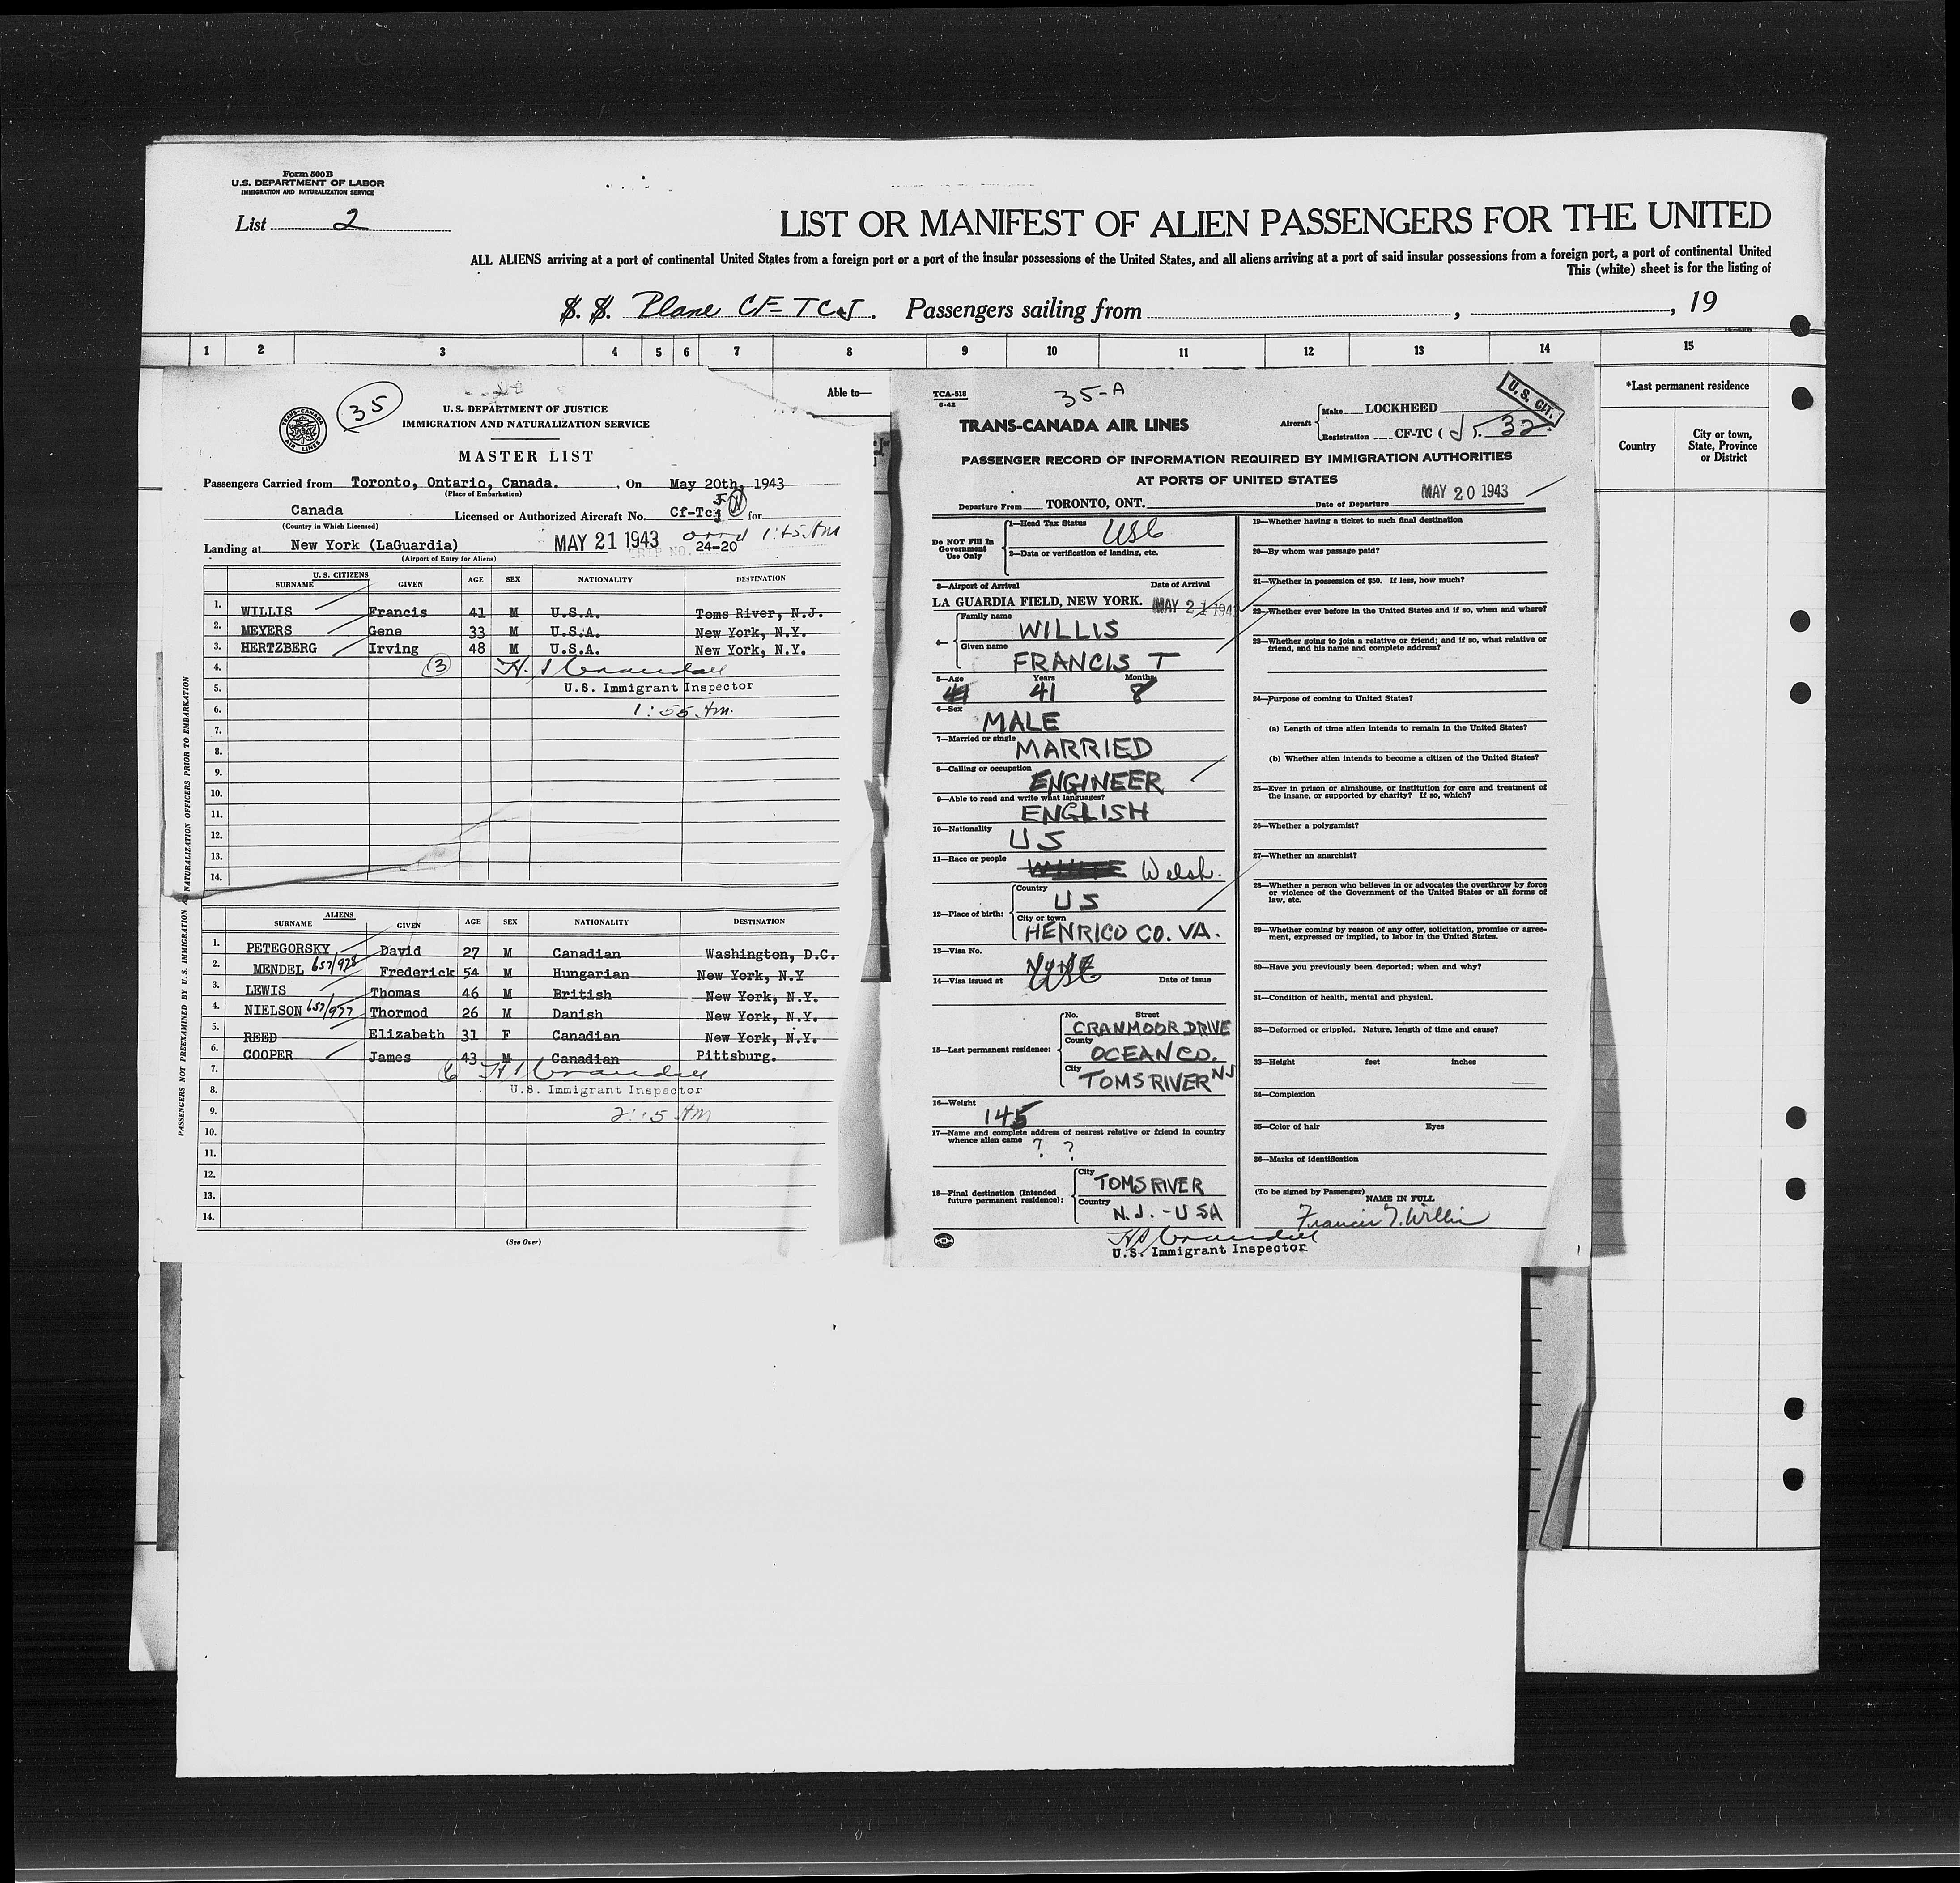 Form 500 B
U.S. DEPARTMENT OF LABOR
IMMIGRATION AND NATURALIZATION SERVICE
List 2
LIST OR MANIFEST OF ALIEN PASSENGERS FOR THE UNITED
ALL ALIENS arriving at a port of continental United States from a foreign port or a port of the insular possessions of the United States, and all aliens arriving at a port of said insular possessions from a foreign port, a port of continental United
This (white) sheet is for the listing of
S. S. Plane CF-TCJ. Passengers sailing from , , 19
1 2 3 4 5 6 7 8 9 10 11 12 13 14 15
Able to—
*Last permanent residence
Country
City or town, State, Province or District
35
TRANS-CANADA AIR LINES
U. S. DEPARTMENT OF JUSTICE
IMMIGRATION AND NATURALIZATION SERVICE
MASTER LIST
Passengers Carried from Toronto, Ontario, Canada. , On May 20th, 1943
(Place of Embarkation)
Canada Licensed or Authorized Aircraft No. Cf-Tcj for
(Country in Which Licensed)
Landing at New York (LaGuardia) MAY 21 1943 TRIP NO. 24-20 1:45 AM
(Airport of Entry for Aliens)
U. S. CITIZENS
SURNAME GIVEN AGE SEX NATIONALITY DESTINATION
1. WILLIS Francis 41 M U.S.A. Toms River, N.J.
2. MEYERS Gene 33 M U.S.A. New York, N.Y.
3. HERTZBERG Irving 48 M U.S.A. New York, N.Y.
4. (3) H. S Crandall
5. U.S. Immigrant Inspector
6. 1:55 Am.
7.
8.
9.
10.
11.
12.
13.
14.
ALIENS
SURNAME GIVEN AGE SEX NATIONALITY DESTINATION
1. PETEGORSKY David 27 M Canadian Washington, D.C.
2. MENDEL 657/978 Frederick 54 M Hungarian New York, N.Y
3. LEWIS Thomas 46 M British New York, N.Y.
4. NIELSON 657/977 Thormod 26 M Danish New York, N.Y.
5. REED Elizabeth 31 F Canadian New York, N.Y.
6. COOPER James 43 M Canadian Pittsburg.
7. 6 H S Crandall
8. U.S. Immigrant Inspector
9. 2:15 AM
10.
11.
12.
13.
14.
(See Over)
PASSENGERS NOT PREEXAMINED BY U.S. IMMIGRATION NATURALIZATION OFFICERS PRIOR TO EMBARKATION
TCA-518
6-42
35-A
U. S. CIT.
TRANS-CANADA AIR LINES
Aircraft Make LOCKHEED
Registration CF-TC ( J ). 32
PASSENGER RECORD OF INFORMATION REQUIRED BY IMMIGRATION AUTHORITIES
AT PORTS OF UNITED STATES
Departure From TORONTO, ONT. Date of Departure MAY 20 1943
Do NOT Fill In Government Use Only
1—Head Tax Status USC
2—Data or verification of landing, etc.
3—Airport of Arrival Date of Arrival
LA GUARDIA FIELD, NEW YORK. MAY 21 1943
4— Family name WILLIS
Given name FRANCIS T
5—Age Years 41 Months 8
6—Sex MALE
7—Married or single MARRIED
8—Calling or occupation ENGINEER
9—Able to read and write what languages? ENGLISH
10—Nationality US
11—Race or people WHITE Welsh.
12—Place of birth: Country US
City or town HENRICO CO. VA.
13—Visa No. NONE
14—Visa issued at Date of issue
15—Last permanent residence: No. Street CRANMOOR DRIVE
County OCEAN CO.
City TOMS RIVER NJ
16—Weight 145
17—Name and complete address of nearest relative or friend in country whence alien came ? ?
18—Final destination (Intended future permanent residence): City TOMS RIVER
Country N.J. - USA
19—Whether having a ticket to such final destination
20—By whom was passage paid?
21—Whether in possession of $50. If less, how much?
22—Whether ever before in the United States and if so, when and where?
23—Whether going to join a relative or friend; and if so, what relative or friend, and his name and complete address?
24—Purpose of coming to United States?
(a) Length of time alien intends to remain in the United States?
(b) Whether alien intends to become a citizen of the United States?
25—Ever in prison or almshouse, or institution for care and treatment of the insane, or supported by charity? If so, which?
26—Whether a polygamist?
27—Whether an anarchist?
28—Whether a person who believes in or advocates the overthrow by force or violence of the Government of the United States or all forms of law, etc.
29—Whether coming by reason of any offer, solicitation, promise or agreement, expressed or implied, to labor in the United States.
30—Have you previously been deported; when and why?
31—Condition of health, mental and physical.
32—Deformed or crippled. Nature, length of time and cause?
33—Height feet inches
34—Complexion
35—Color of hair Eyes
36—Marks of identification
(To be signed by Passenger)
NAME IN FULL
Francis T. Willis
H S Crandall
U.S. Immigrant Inspector